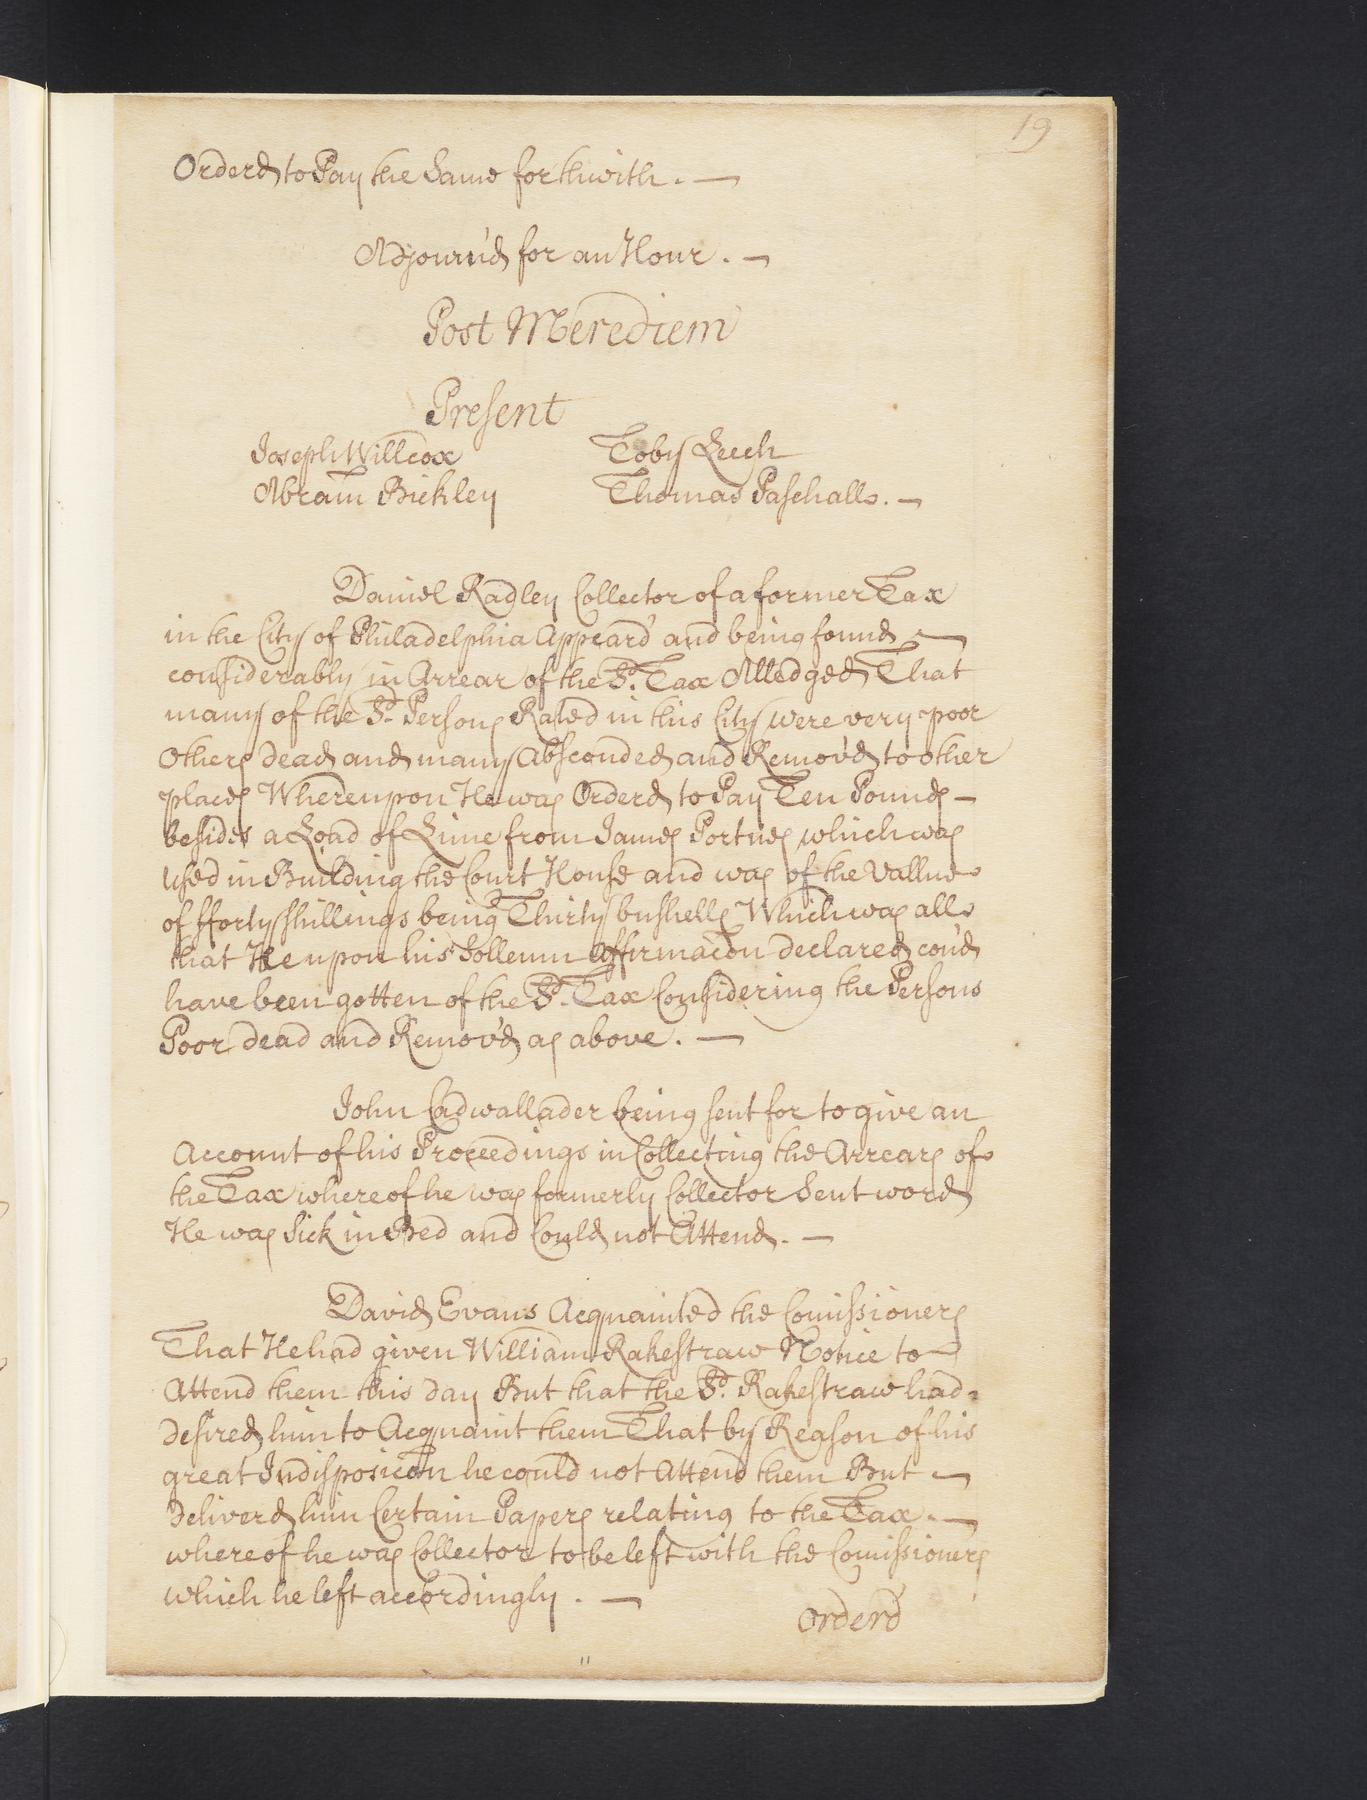 19
Orderd to Pay the Same forthwith. —
Adjourn'd for an Hour. —
Post Merediem
Present
Joseph Willcox Toby Leech
Abram Bickley Thomas Paschall. —
Daniel Radley Collector of a former Tax
in the City of Philadelphia Appeard and being found —
considerably in Arrear of the Sd. Tax Alledged That
many of the Sd. Persons Rated in this City were very poor
Others dead and many Absconded and Remov'd to other
places Whereupon He was Orderd to Pay Ten Pounds —
besides a Load of Lime from James Portues which was
Used in Building the Court House and was of the Vallue
of fforty shillings being Thirty bushells Which was all
that He upon his Sollemn Affirmacon declared cou'd
have been gotten of the Sd. Tax Considering the Persons
Poor dead and Remov'd as above. —
John Cadwallader being sent for to give an
Account of his Proceedings in Collecting the Arrears of
the Tax whereof he was formerly Collector Sent word
He was Sick in Bed and Could not Attend. —
David Evans Acquainted the Comissioners
That He had given William Rakestraw Notice to —
Attend them this day But that the Sd. Rakestraw had
desired him to Acquaint them That by Reason of his
great Indisposicon he could not Attend them But —
Deliverd him Certain Papers relating to the Tax —
whereof he was Collector to be left with the Comissioners
which he left accordingly. —
Orderd